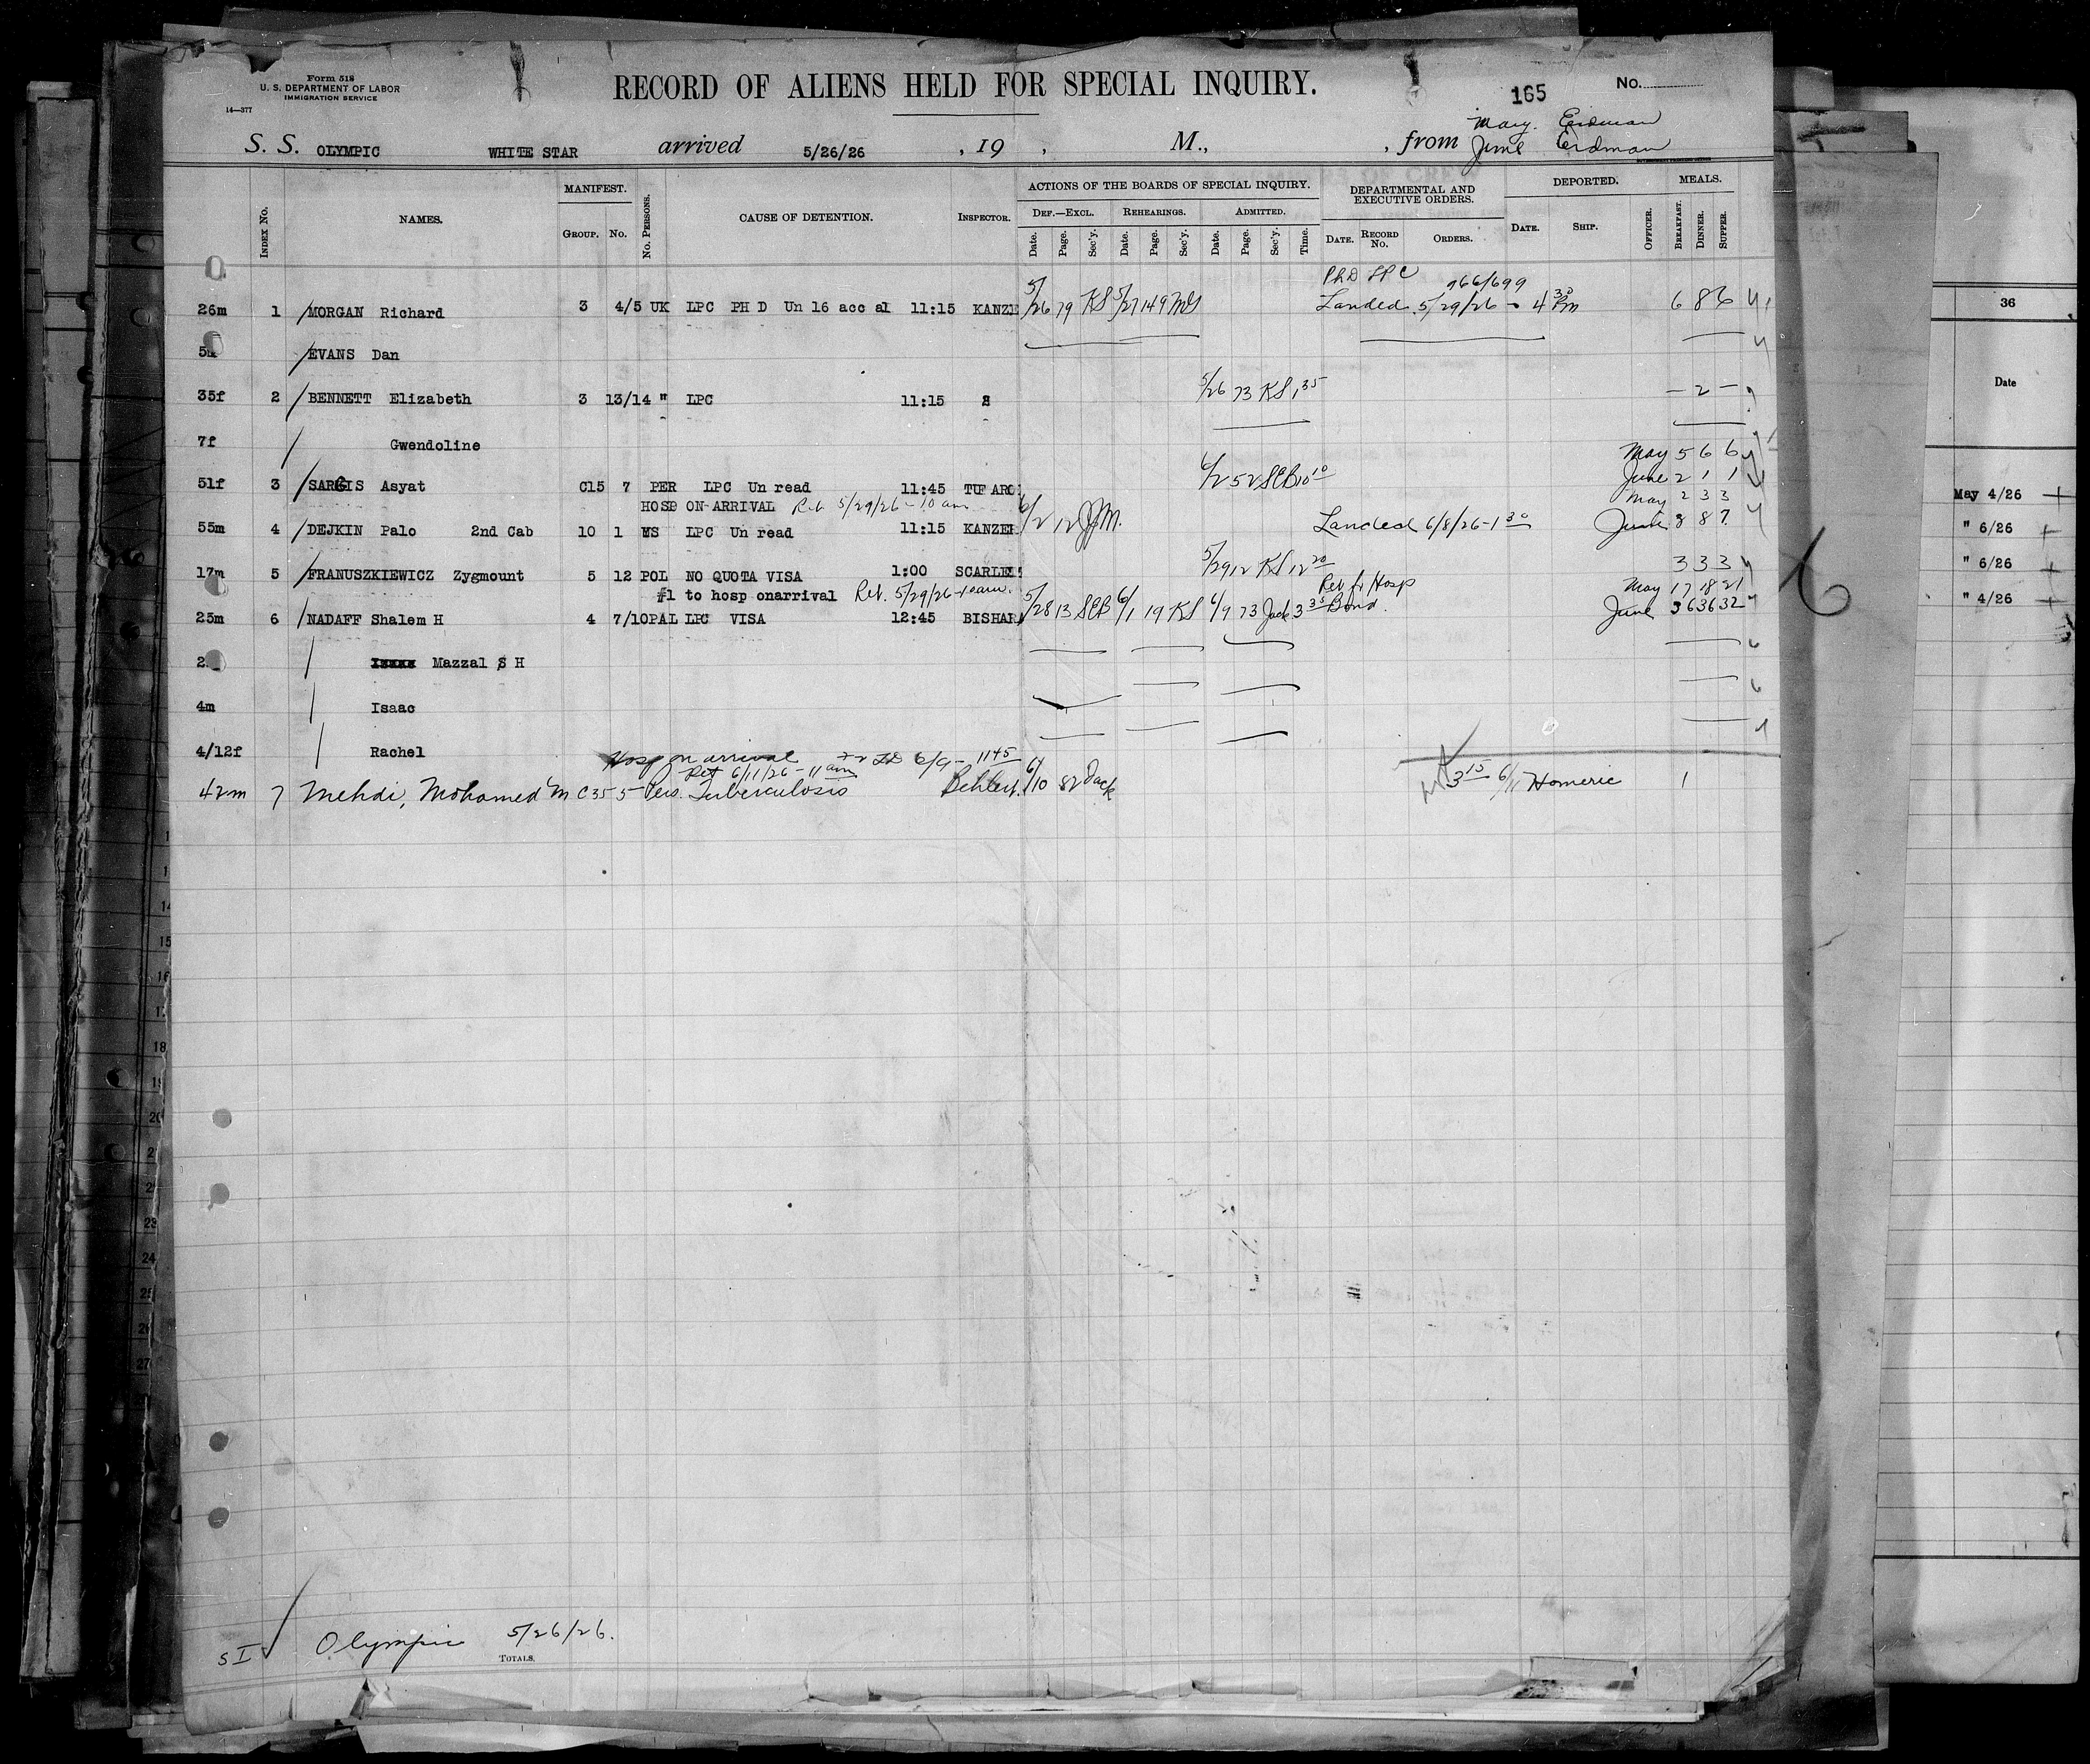 Form 518
U. S. DEPARTMENT OF LABOR
IMMIGRATION SERVICE
14—377
RECORD OF ALIENS HELD FOR SPECIAL INQUIRY.
165
No.
S. S. OLYMPIC WHITE STAR arrived 5/26/26 , 19 , M., , from May. Erdman
June Erdman
INDEX No. NAMES. MANIFEST. GROUP. No. No. PERSONS. CAUSE OF DETENTION. INSPECTOR. ACTIONS OF THE BOARDS OF SPECIAL INQUIRY. DEF.—EXCL. Date. Page. Sec'y. REHEARINGS. Date. Page. Sec'y. ADMITTED. Date. Page. Sec'y. Time. DEPARTMENTAL AND EXECUTIVE ORDERS. DATE. RECORD No. ORDERS. DEPORTED. DATE. SHIP. OFFICER. MEALS. BREAKFAST. DINNER. SUPPER.
PhD LPC 966/699
26m 1 MORGAN Richard 3 4/5 UK LPC PH D Un 16 acc al 11:15 KANZE 5/26 79 KS 5/27 149 MS Landed 5/29/26 - 4 30 Pm 6 8 6
EVANS Dan
35f 2 BENNETT Elizabeth 3 13/14 " LPC 11:15 5/26 73 KS 1 35 - 2 -
7f Gwendoline
May 5 6 6
51f 3 SARGIS Asyat C15 7 PER LPC Un read 11:45 TUFARO 6/2 52 SCB 10 10 June 2 1 1
HOSP ON ARRIVAL Ret 5/29/26 - 10 am May 2 3 3
55m 4 DEJKIN Palo 2nd Cab 10 1 LPC Un read 11:15 KANZER 6/2 12 JM. Landed 6/8/26 - 1 30 June 8 8 7
17m 5 FRANUSZKIEWICZ Zygmount 5 12 POL NO QUOTA VISA 1:00 SCARLE 5/29 12 KS 12 20 3 3 3
#1 to hosp onarrival Ret. 5/29/26 - 10 am. Ret fr Hosp May 17 18 21
25m 6 NADAFF Shalem H 4 7/10 PAL LPC VISA 12:45 BISHARA 5/28 13 SCB 6/1 19 KS 6/9 73 Jack 3 35 Bond. June 36 36 32
Mazzal S H
4m Isaac
4/12f Rachel
Hosp on arrival 6/9 - 1145
Ret 6/11/26 - 11 am
42m 7 Mehdi, Mohamed M C35 5 Pers. Tuberculosis 6/10 82 Jack 3 15 6/11 Homeric 1
SI Olympic 5/26/26.
TOTALS.
36
Date
May 4/26
" 6/26
" 6/26
" 4/26